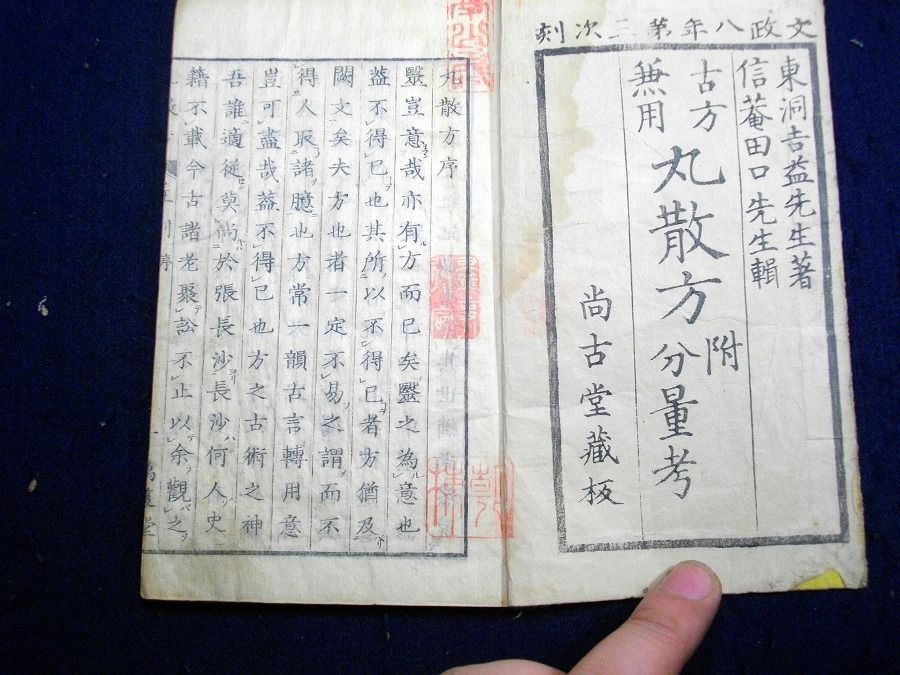 文政八年第三次刻
東洞吉益先生著
信菴田口先生輯
古方
兼用
丸散方
附
分量考
尚古堂藏板
丸散方序
毉豈意哉亦有方而已矣毉之為意也
葢不得已也其所以不得已者方猶及
闕文矣夫方也者一定不易之謂而不
得人取諸臆也方常一韻古言轉用意
豈可盡哉葢不得已也方之古術之神
吾誰適從莫尚於張長沙長沙何人史
籍不載今古諸老聚訟不止以余觀之